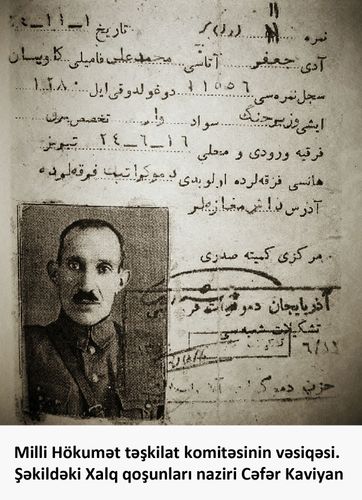 نمره
تاریخ ۱-۱۱-۲۴
آدی جعفر آتاسی محمدعلی فامیلی کاویان
سجل نمره‌سی ۱۱۵۵۶ دوغولدوقی ایل ۱۲۸۰
ایشی وزیر جنگ سواد وار تخصص
فرقیه ورودی و محلی ۱۶-۶-۲۴ تبریز
هانسی فرقه‌لرده اولوبدی دموکراتیت فرقه‌لرده
آدرس
مرکزی کمیته صدری
آذربایجان دموکرات فر
تشکیلات شعبه‌سی
حزب
Milli Hökumət təşkilat komitəsinin vəsiqəsi.
Şəkildəki Xalq qoşunları naziri Cəfər Kaviyan